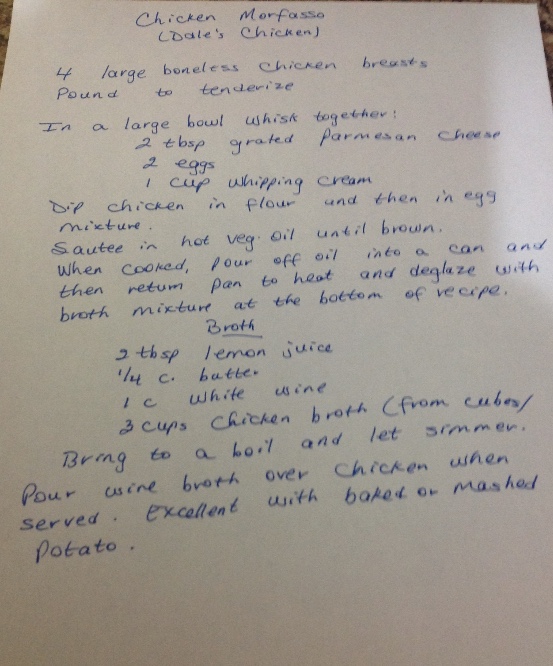 Chicken Morfasso
(Dale's Chicken)
4 large boneless chicken breasts
Pound to tenderize
In a large bowl whisk together:
2 tbsp grated Parmesan cheese
2 eggs
1 cup whipping cream
Dip chicken in flour and then in egg
mixture.
Sautee in hot veg. oil until brown.
When cooked, pour off oil into a can and
then return pan to heat and deglaze with
broth mixture at the bottom of recipe.
Broth
2 tbsp lemon juice
1/4 c. butter
1 c white wine
3 cups chicken broth (from cubes/
Bring to a boil and let simmer.
Pour wine broth over chicken when
served. Excellent with baked or mashed
potato.